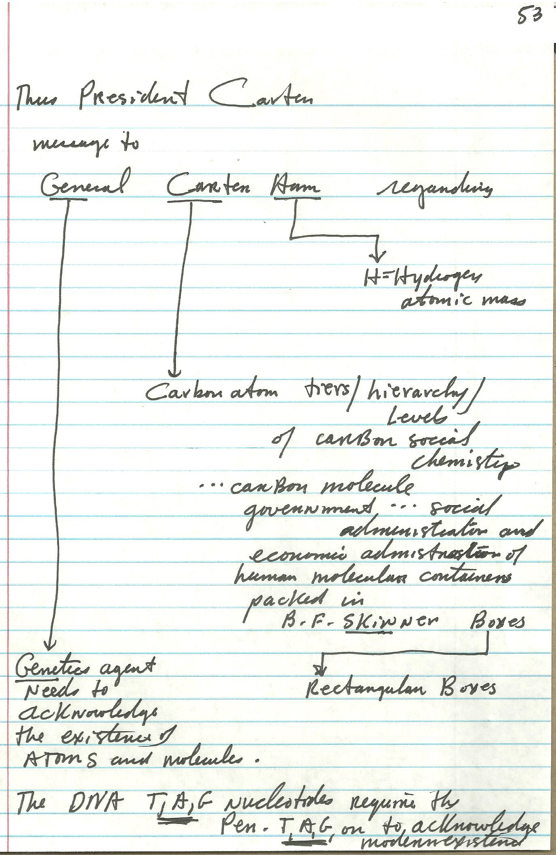 53
Thus President Carter
message to
General Carter Ham regarding
H=Hydrogen
atomic mass
Carbon atom tiers/hierarchy/
Levels
of carBon social
chemistry
... carBon molecule
government ... social
administration and
economic administration of
human molecular containers
packed in
B.F. SKiNNer Boxes
Rectangular Boxes
Genetics agent
Needs to
acknowledge
the existence of
ATOMS and molecules.
The DNA T,A,G Nucleotides require the
Pen. T,A,G, on to acknowledge
modern existence